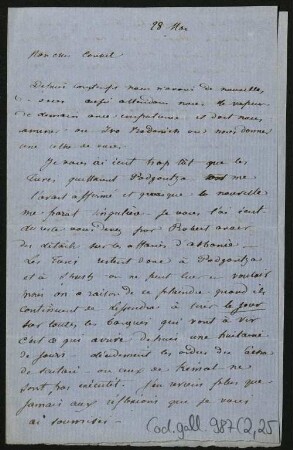 28 Mai
Mon cher Consul
Depuis longtemps nous n'avons de nouvelles
aussi attendons nous le vapeur
de demain avec impatience et doit nous
amener ou nous donner
une lettre de vous.
Je vous ai écrit trop tôt que les
Turcs quittaient Podgoritza me
l'avait affirmé et quoique la nouvelle
me parut singulière je vous l'ai écrit
du reste vous devez par Robert avoir
des détails sur les affaires d'Albanie.
Les Turcs restent donc à Podgoritza
et à et on ne peut leur en vouloir
mais on a raison de se plaindre quand ils
continuent se à tirer le jour
sur toutes les barques qui vont à Vir
C'est ce qui arrive depuis une huitaine
de jours. Evidemment les ordres de
ou ceux de Kemal ne
sont pas exécutés. J'en reviens plus que
jamais aux réflexions que je vous
ai soumises.
Cod. gall. 987 (2,25